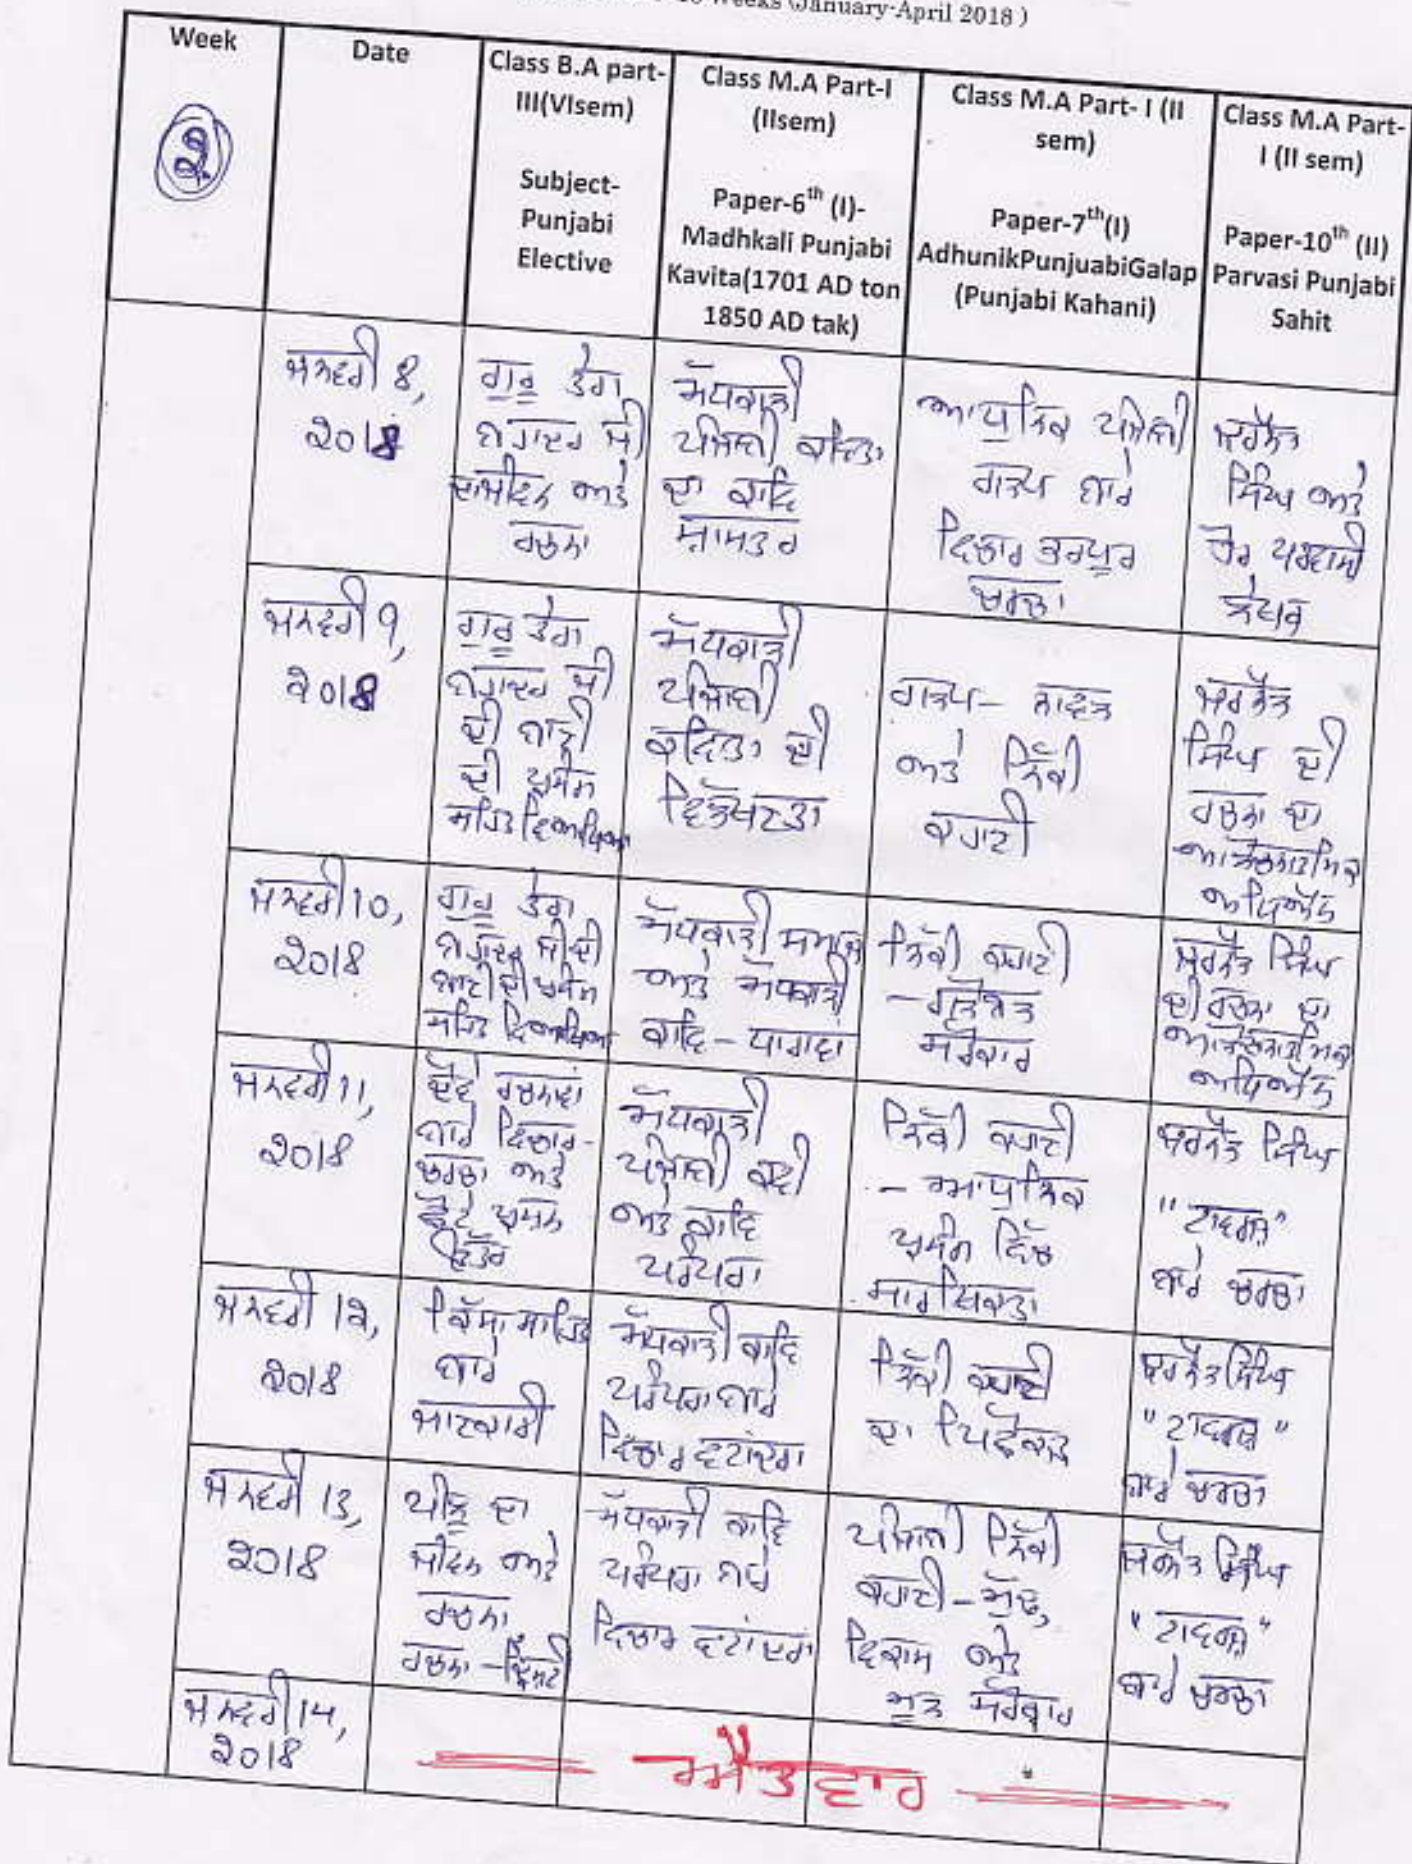 Weeks (January-April 2018 )
Week
Date
Class B.A part-
III(VIsem)
Subject-
Punjabi
Elective
Class M.A Part-I
(IIsem)
Paper-6th (I)-
Madhkali Punjabi
Kavita(1701 AD ton
1850 AD tak)
Class M.A Part- I (II
sem)
Paper-7th(I)
AdhunikPunjuabiGalap
(Punjabi Kahani)
Class M.A Part-
I (II sem)
Paper-10th (II)
Parvasi Punjabi
Sahit
ਜਨਵਰੀ 8,
2018
ਗੁਰੂ ਤੇਗ
ਬਹਾਦਰ ਜੀ
ਦਾ ਜੀਵਨ ਅਤੇ
ਰਚਨਾ
ਮੱਧਕਾਲੀ
ਪੰਜਾਬੀ ਕਵਿਤਾ
ਦਾ ਕਾਵਿ
ਸ਼ਾਸਤਰ
ਆਧੁਨਿਕ ਪੰਜਾਬੀ
ਗਲਪ ਬਾਰੇ
ਵਿਚਾਰ ਭਰਪੂਰ
ਚਰਚਾ
ਜਰਨੈਲ
ਸਿੰਘ ਅਤੇ
ਹੋਰ ਪਰਵਾਸੀ
ਲੇਖਕ
ਜਨਵਰੀ 9,
2018
ਗੁਰੂ ਤੇਗ
ਬਹਾਦਰ ਜੀ
ਦੀ ਬਾਣੀ
ਦੀ ਪ੍ਰਸੰਗ
ਸਹਿਤ ਵਿਆਖਿਆ
ਮੱਧਕਾਲੀ
ਪੰਜਾਬੀ
ਕਵਿਤਾ ਦੀ
ਵਿਲੱਖਣਤਾ
ਗਲਪ - ਨਾਵਲ
ਅਤੇ ਨਿੱਕੀ
ਕਹਾਣੀ
ਜਰਨੈਲ
ਸਿੰਘ ਦੀ
ਰਚਨਾ ਦਾ
ਆਲੋਚਨਾਤਮਿਕ
ਅਧਿਐਨ
ਜਨਵਰੀ 10,
2018
ਗੁਰੂ ਤੇਗ
ਬਹਾਦਰ ਜੀ ਦੀ
ਬਾਣੀ ਦੀ ਪ੍ਰਸੰਗ
ਸਹਿਤ ਵਿਆਖਿਆ
ਮੱਧਕਾਲੀ ਸਮਾਜ
ਅਤੇ ਮੱਧਕਾਲੀ
ਕਾਵਿ - ਧਾਰਾਵਾਂ
ਨਿੱਕੀ ਕਹਾਣੀ
- ਗਲੋਬਲ
ਸਰੋਕਾਰ
ਜਰਨੈਲ ਸਿੰਘ
ਦੀ ਰਚਨਾ ਦਾ
ਆਲੋਚਨਾਤਮਿਕ
ਅਧਿਐਨ
ਜਨਵਰੀ 11,
2018
ਦੋਵੇਂ ਰਚਨਾਵਾਂ
ਬਾਰੇ ਵਿਚਾਰ-
ਚਰਚਾ ਅਤੇ
ਛੋਟੇ ਪ੍ਰਸ਼ਨ
ਉੱਤਰ
ਮੱਧਕਾਲੀ
ਪੰਜਾਬੀ ਕਵੀ
ਅਤੇ ਕਾਵਿ
ਪਰੰਪਰਾ
ਨਿੱਕੀ ਕਹਾਣੀ
- ਆਧੁਨਿਕ
ਪ੍ਰਸੰਗ ਵਿੱਚ
ਸਾਰਥਿਕਤਾ
ਜਰਨੈਲ ਸਿੰਘ
"ਟਾਵਰਜ਼"
ਬਾਰੇ ਚਰਚਾ
ਜਨਵਰੀ 12,
2018
ਕਿੱਸਾ ਸਾਹਿਤ
ਬਾਰੇ
ਜਾਣਕਾਰੀ
ਮੱਧਕਾਲੀ ਕਾਵਿ
ਪਰੰਪਰਾ ਬਾਰੇ
ਵਿਚਾਰ ਵਟਾਂਦਰਾ
ਨਿੱਕੀ ਕਹਾਣੀ
ਦਾ ਪਿਛੋਕੜ
ਜਰਨੈਲ ਸਿੰਘ
"ਟਾਵਰਜ਼"
ਬਾਰੇ ਚਰਚਾ
ਜਨਵਰੀ 13,
2018
ਪੀਲੂ ਦਾ
ਜੀਵਨ ਅਤੇ
ਰਚਨਾ,
ਰਚਨਾ - ਦ੍ਰਿਸ਼ਟੀ
ਮੱਧਕਾਲੀ ਕਾਵਿ
ਪਰੰਪਰਾ ਬਾਰੇ
ਵਿਚਾਰ ਵਟਾਂਦਰਾ
ਪੰਜਾਬੀ ਨਿੱਕੀ
ਕਹਾਣੀ - ਮੁੱਢ,
ਵਿਕਾਸ ਅਤੇ
ਮੂਲ ਸਰੋਕਾਰ
ਜਰਨੈਲ ਸਿੰਘ
"ਟਾਵਰਜ਼"
ਬਾਰੇ ਚਰਚਾ
ਜਨਵਰੀ 14,
2018
ਐਤਵਾਰ